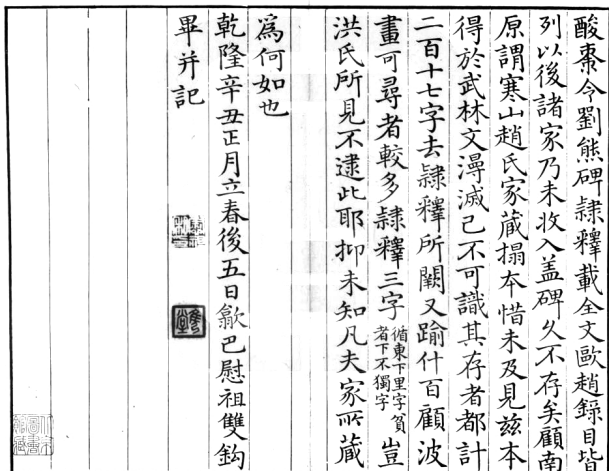 酸棗令劉熊碑隸釋載全文歐趙錄目皆
列以後諸家乃未收入盖碑久不存矣顧南
原謂寒山趙氏家藏搨本惜未及見兹本
得於武林文漫滅已不可識其存者都計
二百十七字去隸釋所闕又踰什百顧波
畫可尋者較多隸釋三字循東下里字貧者下不獨字豈
洪氏所見不逮此耶抑未知凡夫家所藏
爲何如也
乾隆辛丑正月立春後五日歙巴慰祖雙鈎
畢并記